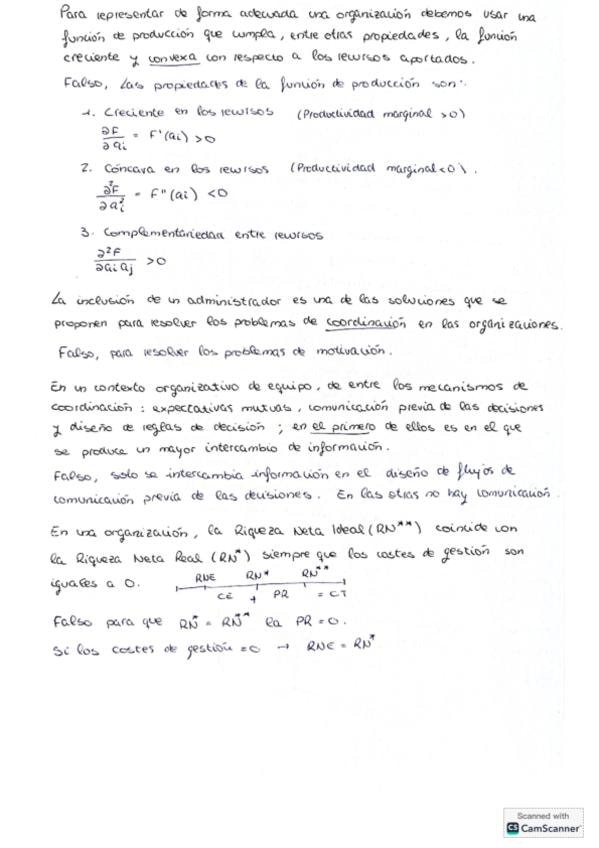 Para representar de forma adecuada una organización debemos usar una
función de producción que cumpla, entre otras propiedades, la función
creciente y convexa con respecto a los recursos aportados.
Falso, Las propiedades de la función de producción son:
1. Creciente en los recursos (Productividad marginal >0)
∂F/∂ai = F'(ai) >0
2. Cóncava en los recursos (Productividad marginal <0).
∂²F/∂ai² = F''(ai) <0
3. Complementariedad entre recursos
∂²F/∂ai aj >0
La inclusión de un administrador es una de las soluciones que se
proponen para resolver los problemas de coordinación en las organizaciones.
Falso, para resolver los problemas de motivación.
En un contexto organizativo de equipo, de entre los mecanismos de
coordinación: expectativas mutuas, comunicación previa de las decisiones
y diseño de reglas de decisión; en el primero de ellos es en el que
se produce un mayor intercambio de información.
Falso, solo se intercambia información en el diseño de flujos de
comunicación previa de las decisiones. En las otras no hay comunicación.
En una organización, la Riqueza Neta Ideal (RN**) coincide con
la Riqueza Neta Real (RN*) siempre que los costes de gestión son
iguales a 0.
RNE RN* RN**
CE + PR = CT
Falso para que RN* = RN** la PR=0.
Si los costes de gestión =0 → RNE = RN*
Scanned with
CS CamScanner